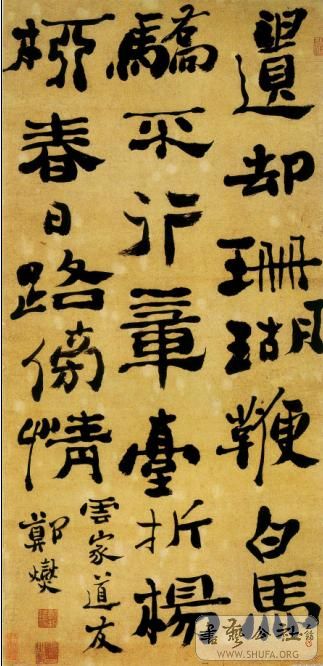 遺却珊瑚鞭白馬
驕不行章臺折楊
桺春日路傍情
雲家道友
鄭燮
書藝公社
WWW.SHUFA.ORG